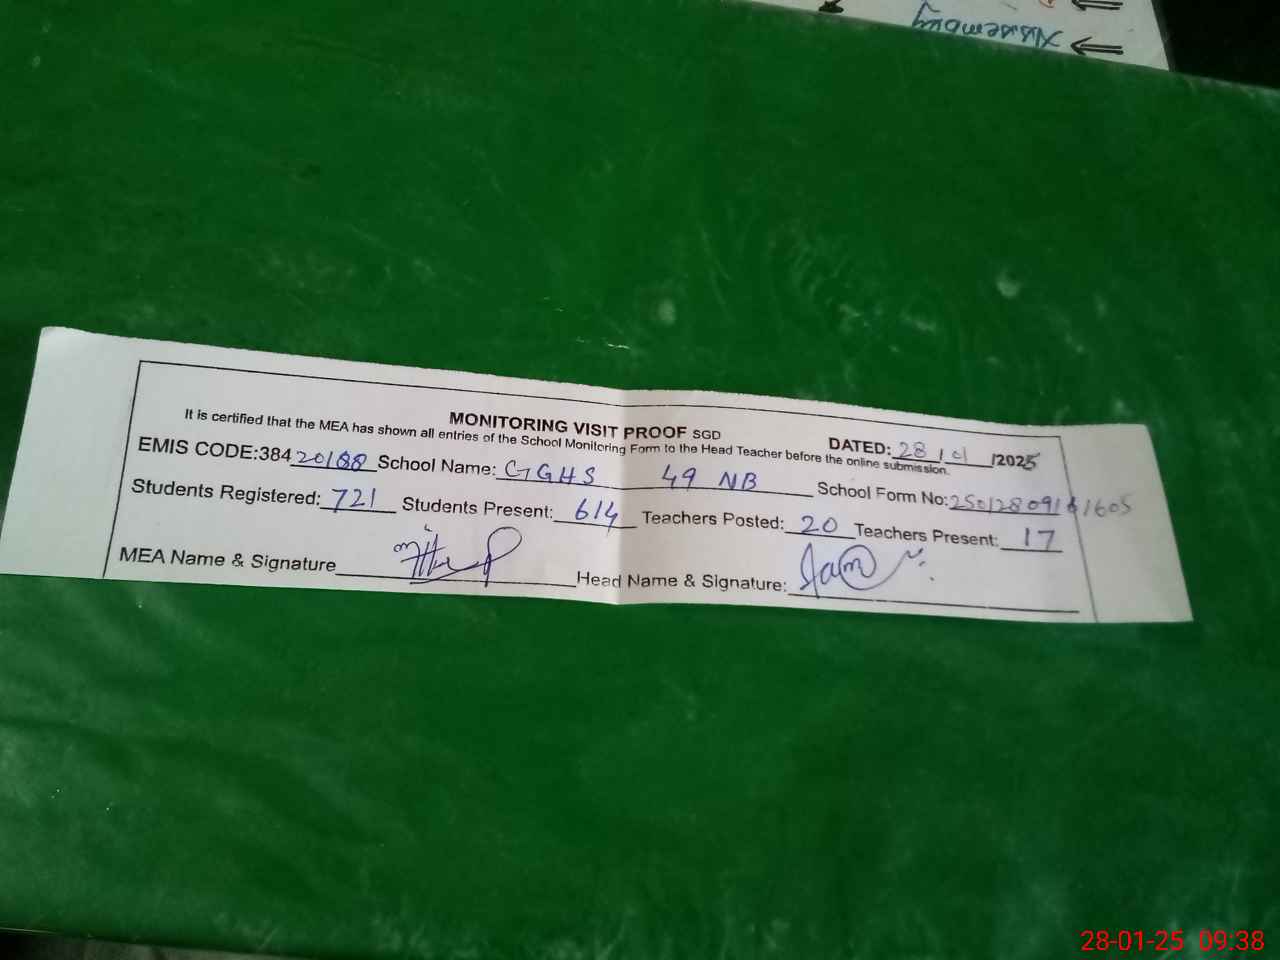 Assembly
MONITORING VISIT PROOF SGD
DATED: 28/01/2025
It is certified that the MEA has shown all entries of the School Monitoring Form to the Head Teacher before the online submission.
EMIS CODE:38420188 School Name: GGHS 49 NB School Form No:25012809161605
Students Registered: 721 Students Present: 614 Teachers Posted: 20 Teachers Present: 17
MEA Name & Signature Head Name & Signature:
28-01-25 09:38